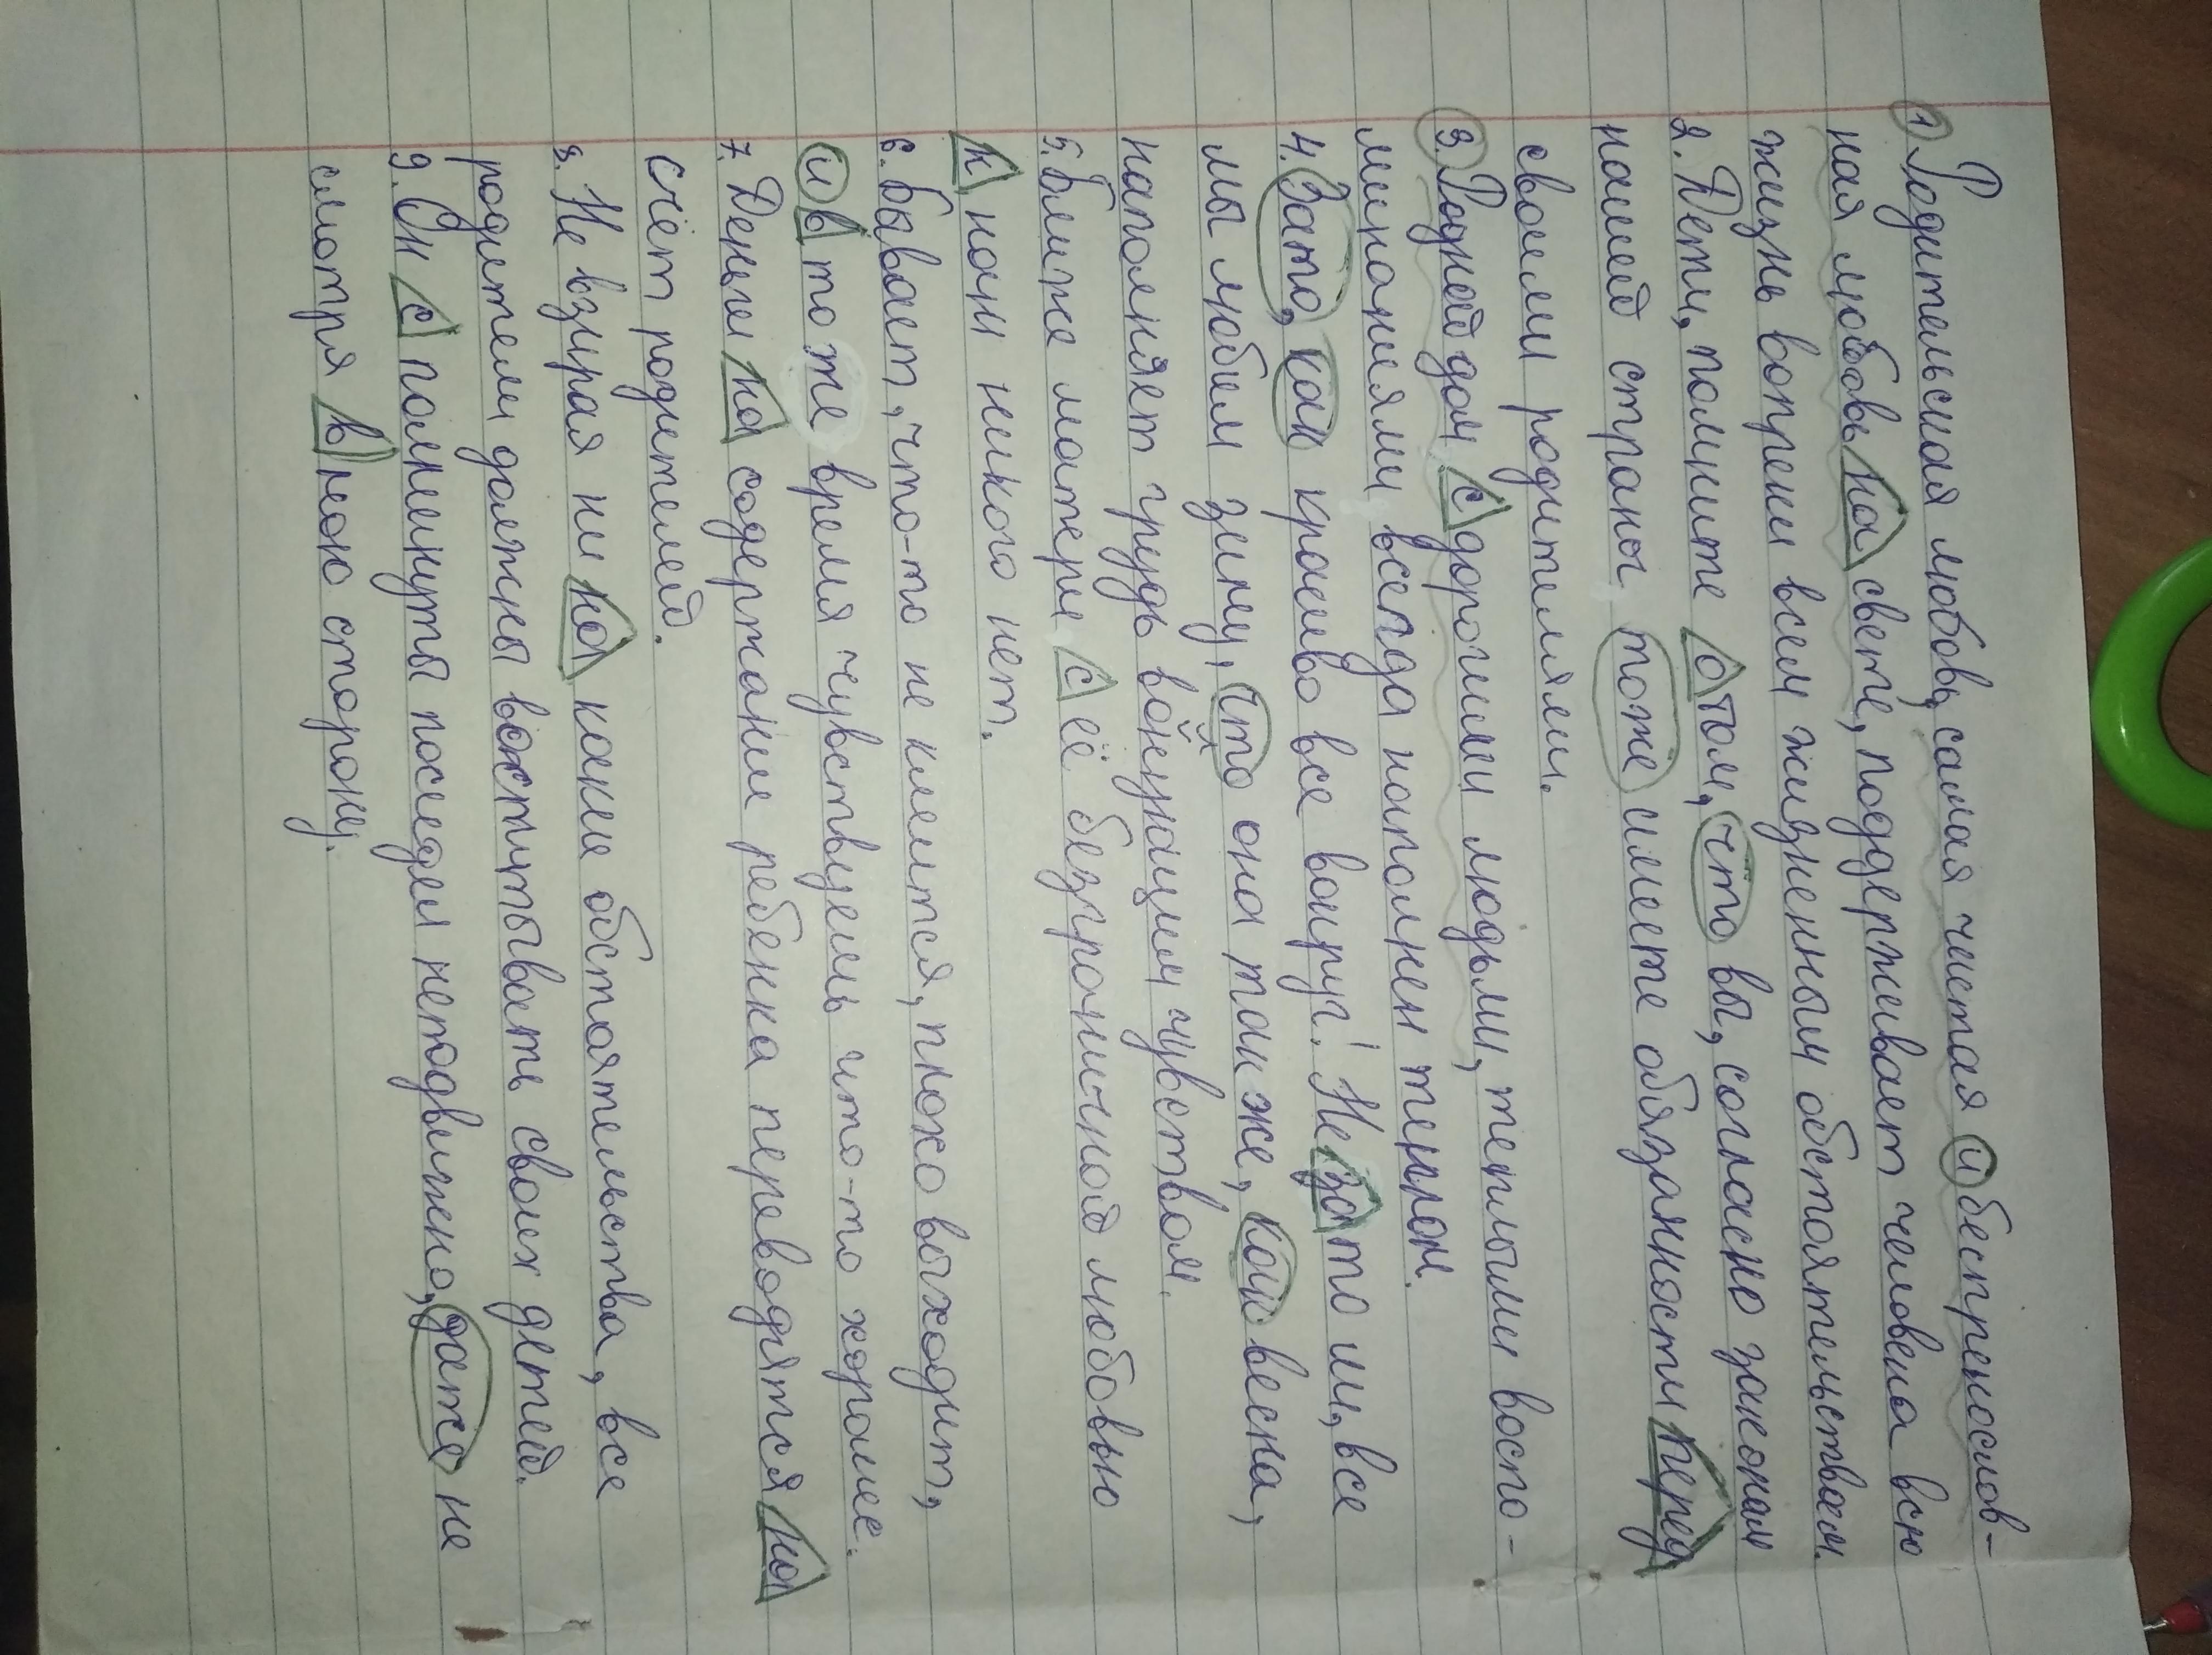 1) Родительская любовь, самая чистая и беспренослов-
ная любовь на свете, поддерживает человека всю
жизнь вопреки всем жизненным обстоятельствам.
2. Дети, помните о том, что вы, согласно законам
нашей страны тоже имеете обязанности перед
своеми родителями.
3) Родной дом с дорогими людьми, теплыми воспо-
минаниями всегда наполнен теплом.
4. Зато, как краиво все вокруг! Не за то ли, все
мы любим зиму, что она так же, как весна,
наполняет грудь волнующим чувством.
5. Ближе матери с её безграничной любовью
к нам никого нет.
6. Бывает, что-то не клеится, плохо выходит,
и в то же время чувствуешь что-то хорошее.
7. Деньги на содержание ребенка переводятся на
счёт родителей.
8. Не взирая ни на какие обстоятельства, все
родители должны воспитывать своих детей.
9. Он с полминуты поседел неподвижно, даже не
смотря в мою сторону.